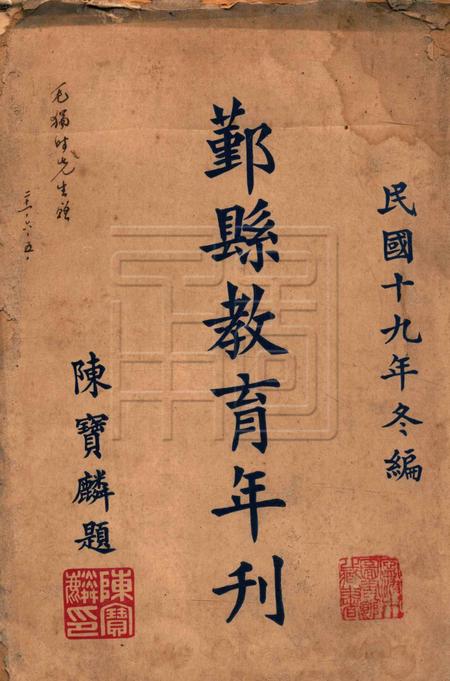 民國十九年冬編
鄞縣教育年刊
陳寶麟題
陳寶麟印
先生贈
二十一·六·五·